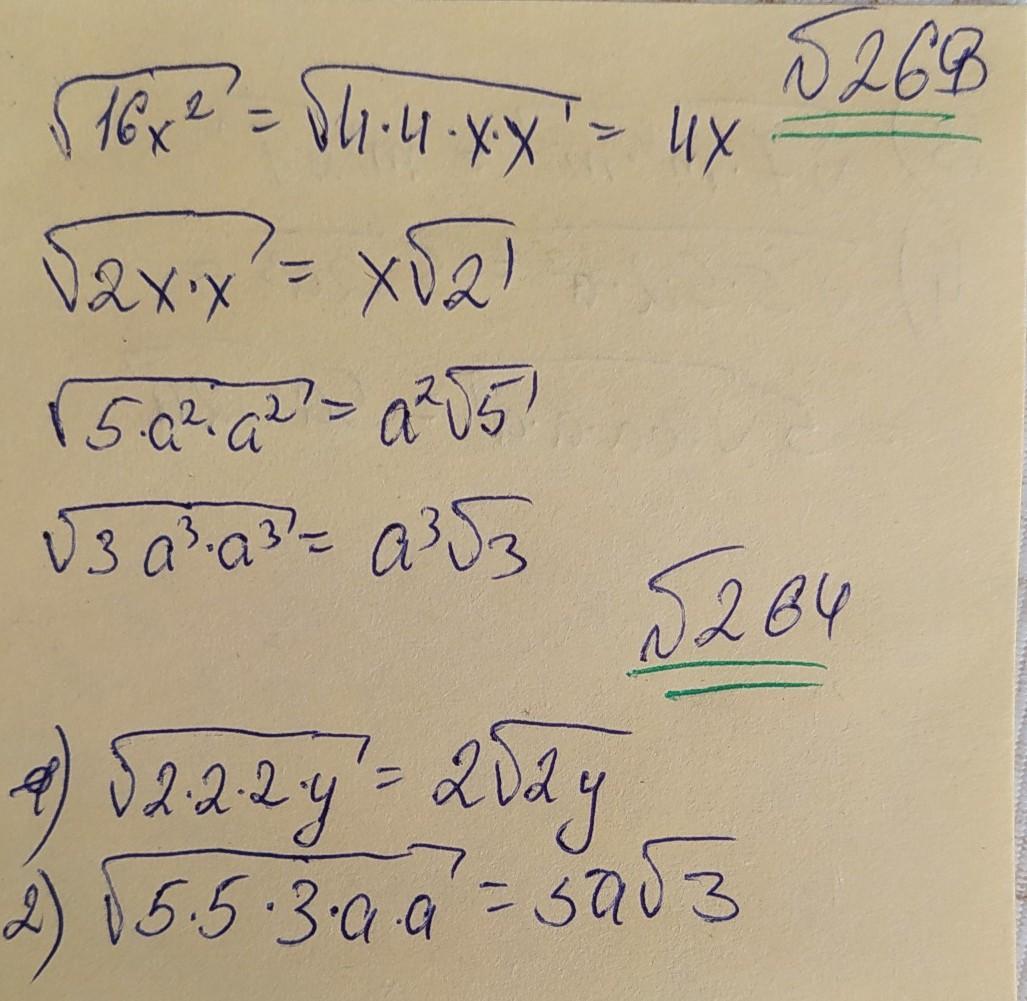 √263
√16x² = √4·4·x·x = 4x
√2x·x = x√2
√5·a²·a² = a²√5
√3a³·a³ = a³√3
√264
1) √2·2·2·y = 2√2y
2) √5·5·3·a·a = 5a√3